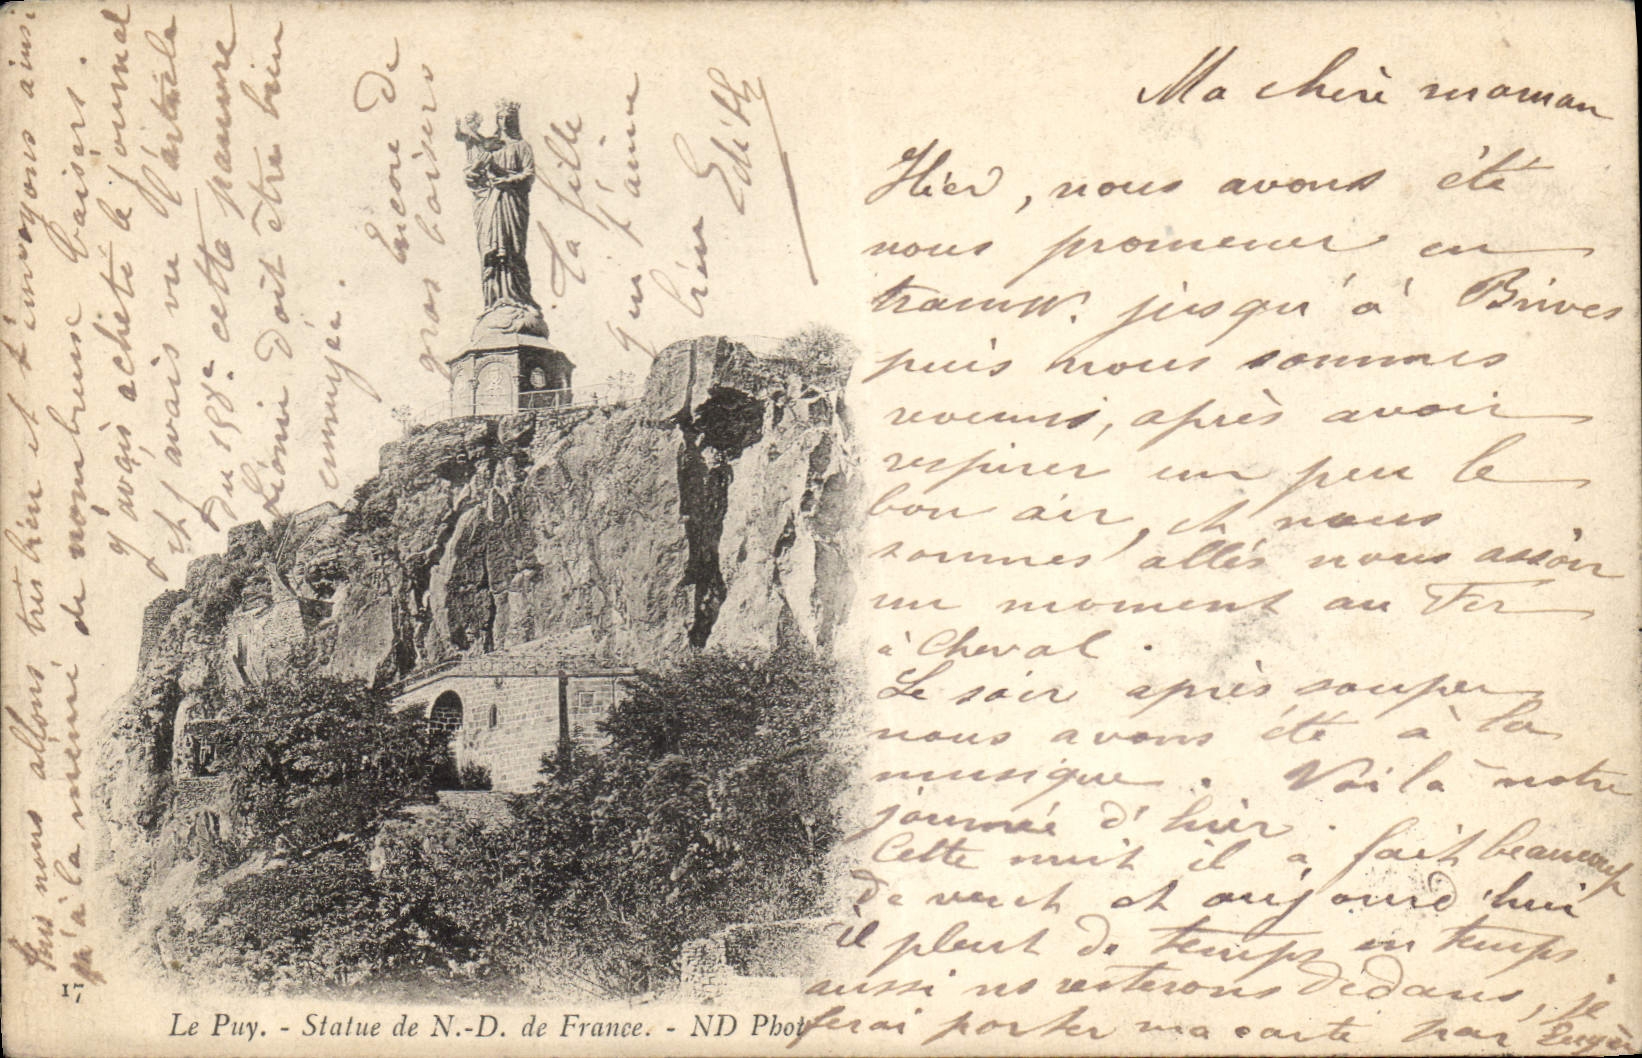 Ma chère maman
Hier, nous avons été
nous promener en
tramw. jusqu'à Brives
puis nous sommes
revenus, après avoir
respirer un peu le
bon air, et nous
sommes allés nous assoir
un moment au Fer
à Cheval.
Le soir après souper
nous avons été à la
musique. Voilà notre
journée d'hier.
Cette nuit il a fait beaucoup
de vent et aujourd'hui
il pleut de temps en temps
aussi ns resterons dedans, je
ferai porter ma carte par Eugèn
nous allons très bien et t'envoyons ainsi
qu'à la mémé de nombreux baisers.
J'avais acheté le journal
et avais vu l'article
du 158e cette pauvre
Léonie doit être bien
ennuyée.
Encore de
gros baisers
Ta fille
qui t'aime
bien Edith
17
Le Puy. - Statue de N.-D. de France. - ND Phot